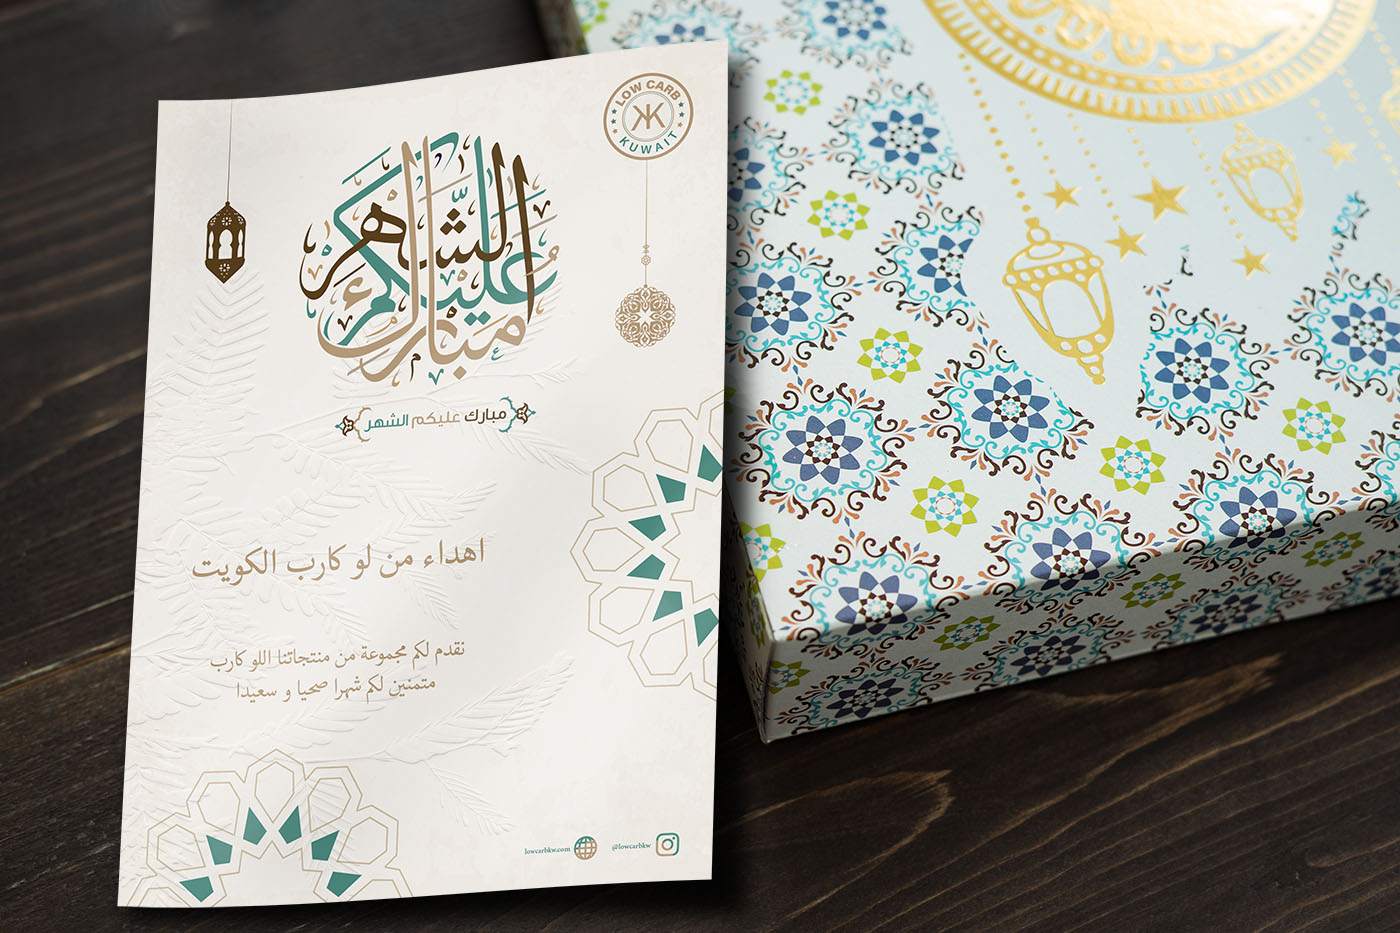 LOW CARB
KK
KUWAIT
مبارك عليكم الشهر
مبارك عليكم الشهر
اهداء من لو كارب الكويت
نقدم لكم مجموعة من منتجاتنا اللو كارب
متمنين لكم شهرا صحيا و سعيدا
lowcarbkw.com
@lowcarbkw